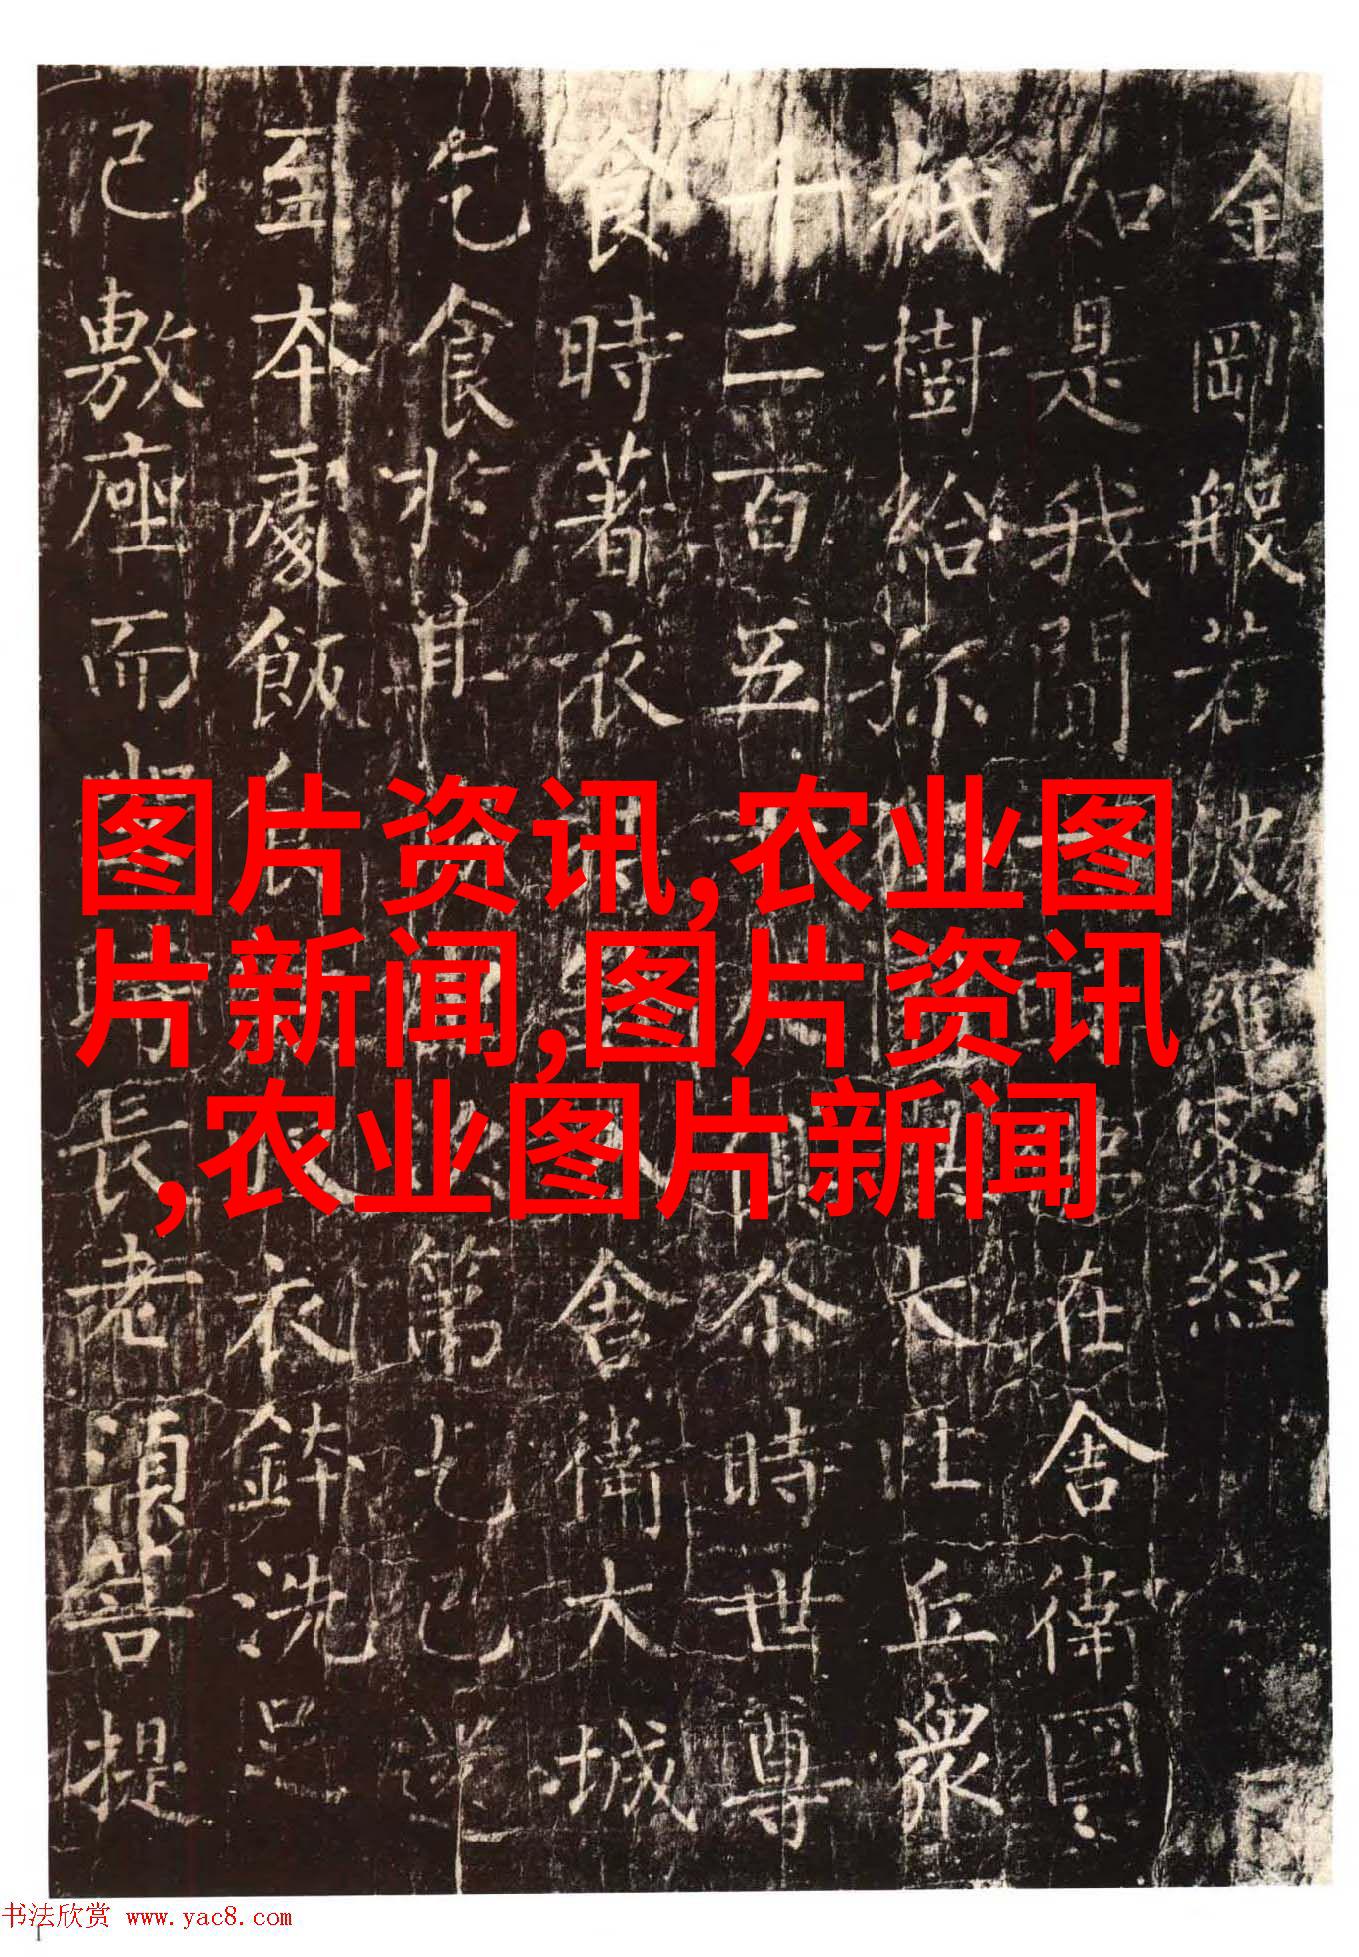 金剛般若波羅蜜經
如是我聞 在舍衛國
祇樹給孤 大比丘衆
十二百五 俱尒時世尊
食時著衣 舍衛大城
乞食於其 第乞已還
至本處飯食 衣鉢洗足
已敷座而 時長老須菩提
图片资讯,农业图
片新闻,图片资讯
,农业图片新闻
书法欣赏 www.yac8.com